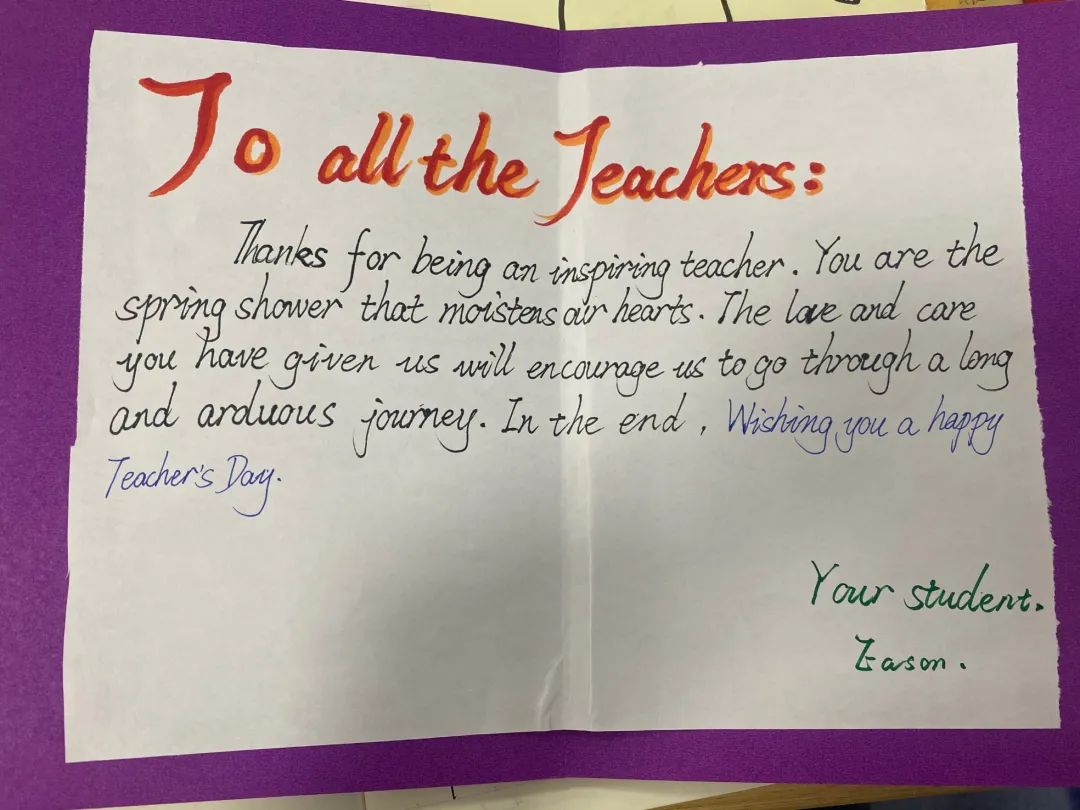 To all the Teachers:
Thanks for being an inspiring teacher. You are the
spring shower that moistens our hearts. The love and care
you have given us will encourage us to go through a long
and arduous journey. In the end, Wishing you a happy
Teacher's Day.
Your student.
Eason.